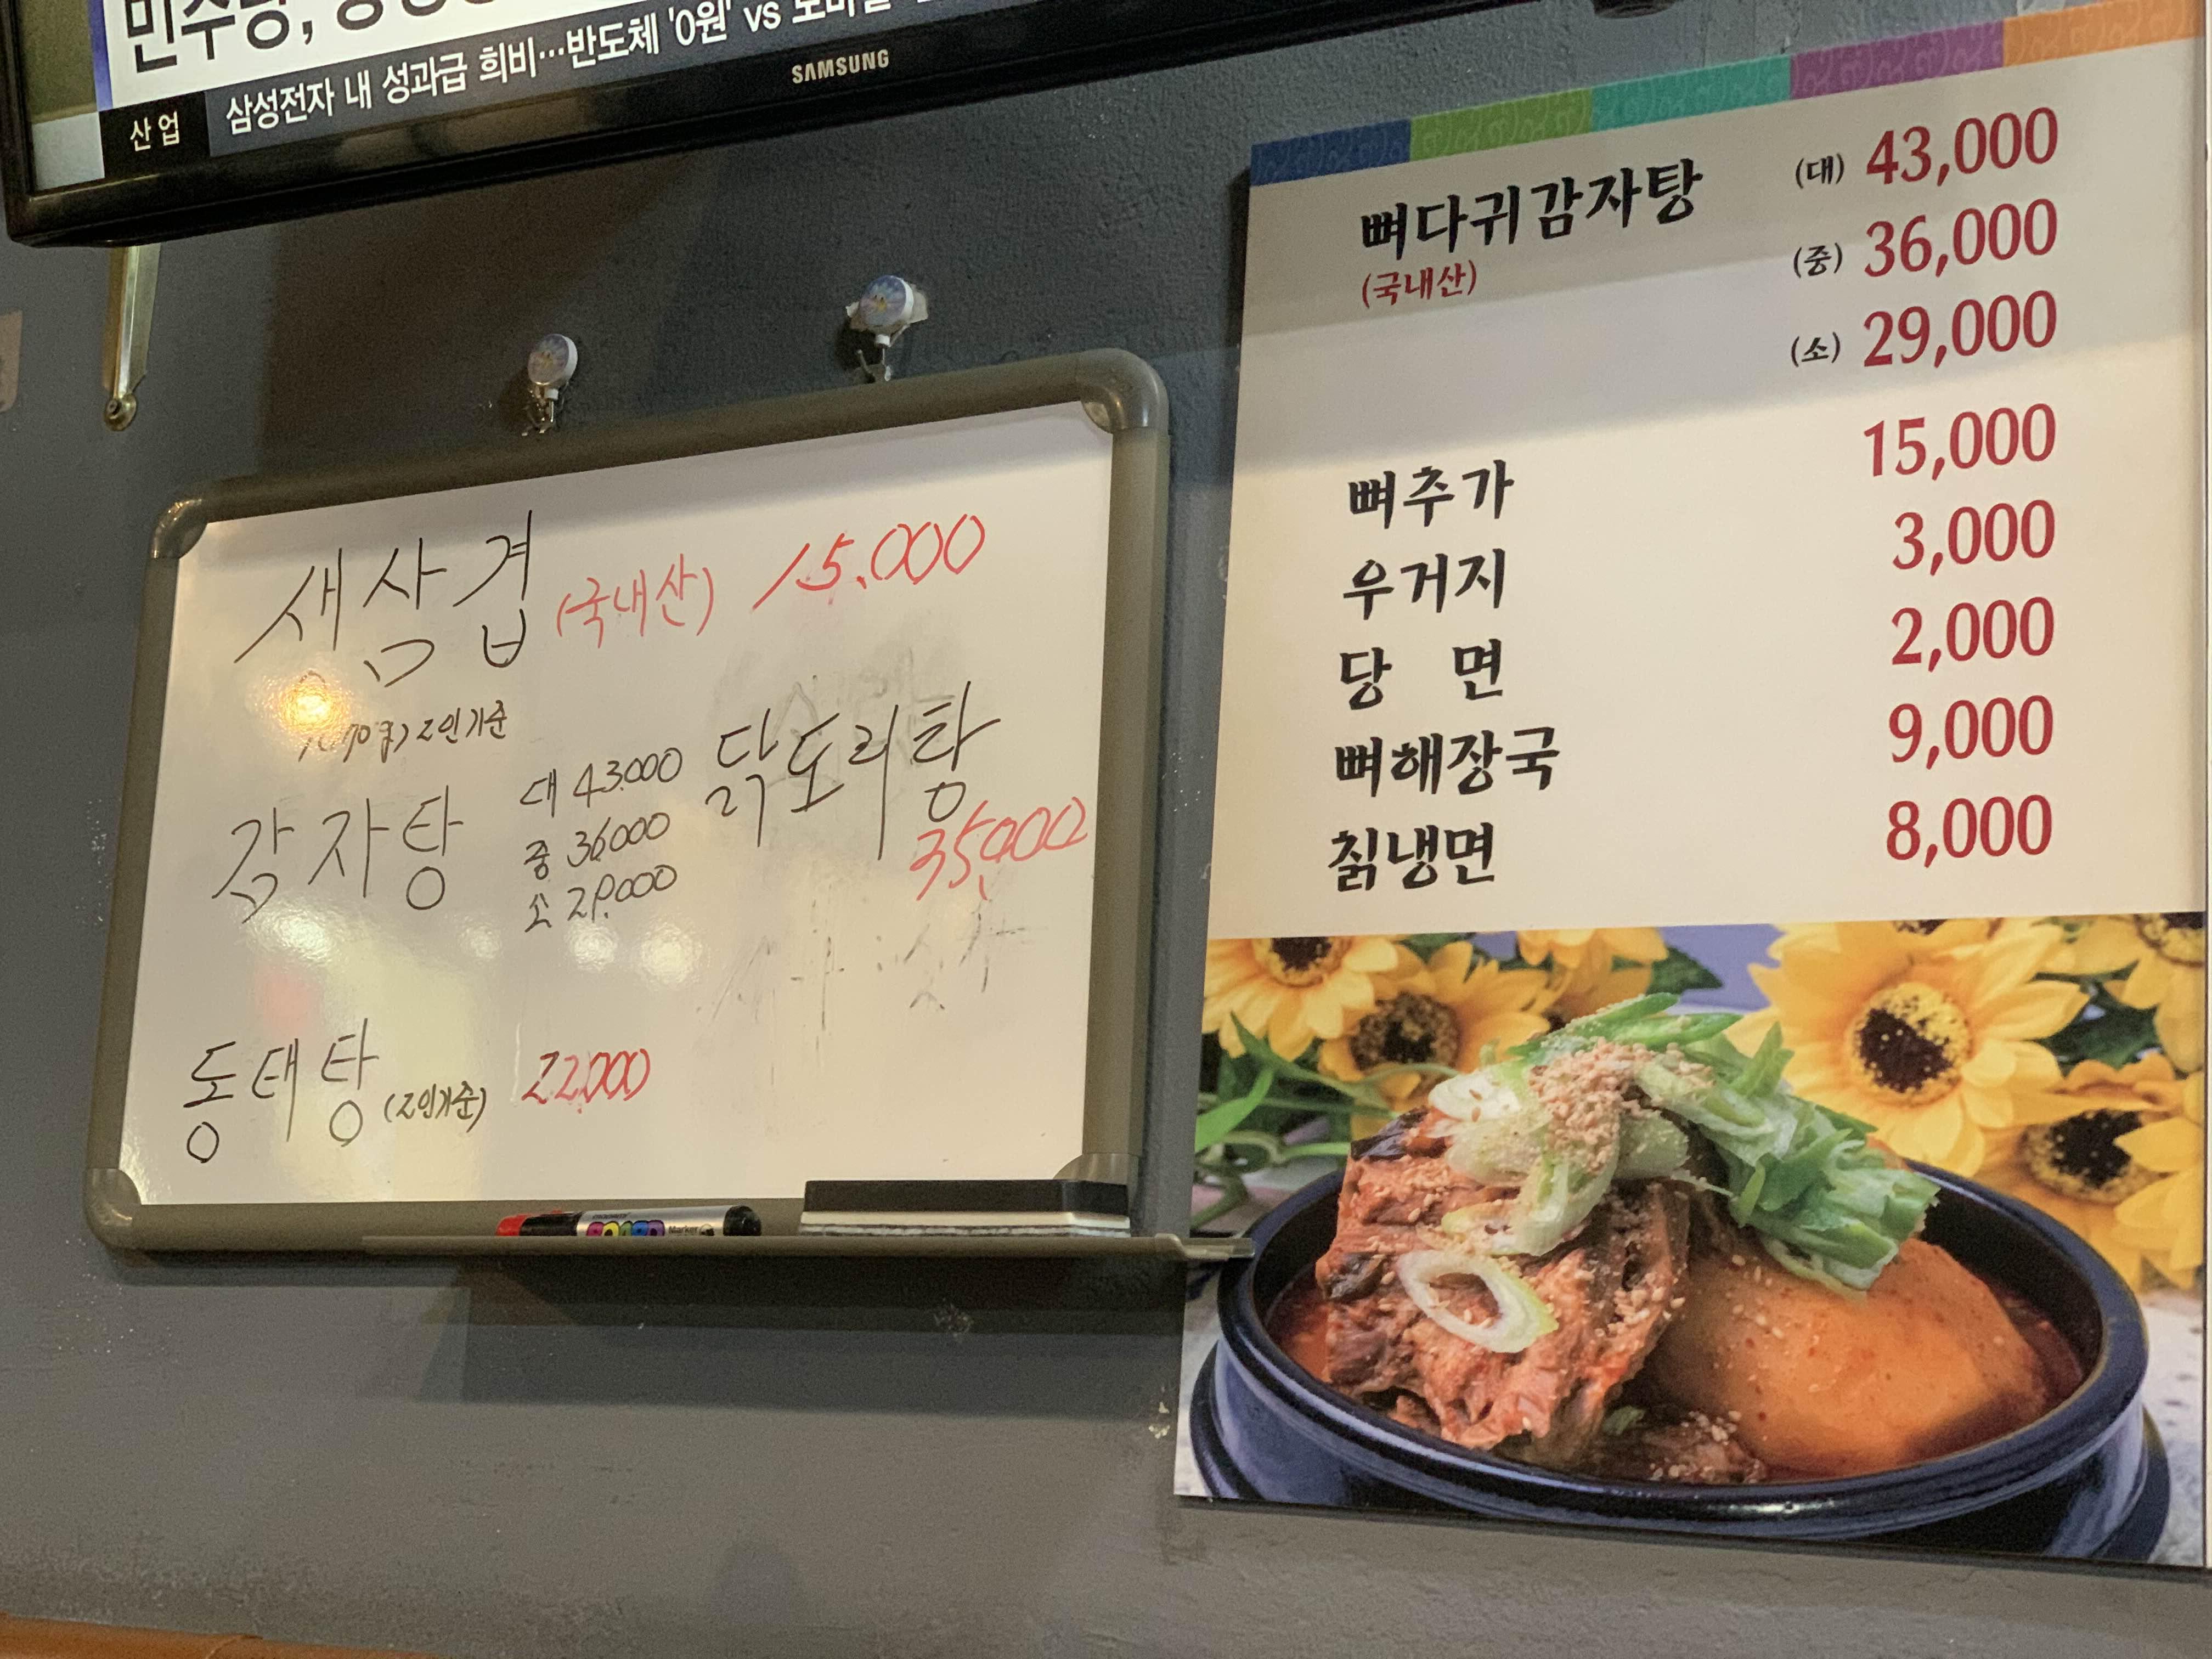 산업
삼성전자 내 성과급 희비…반도체 '0원' vs
SAMSUNG
생삼겹 (국내산) 15.000
2인기준
감자탕
대 43.000
중 36000
소 29.000
닭도리탕
35,000
동태탕 (2인기준) 22.000
Marker
뼈다귀감자탕 (대) 43,000
(국내산)
(중) 36,000
(소) 29,000
뼈추가 15,000
우거지 3,000
당 면 2,000
뼈해장국 9,000
칡냉면 8,000